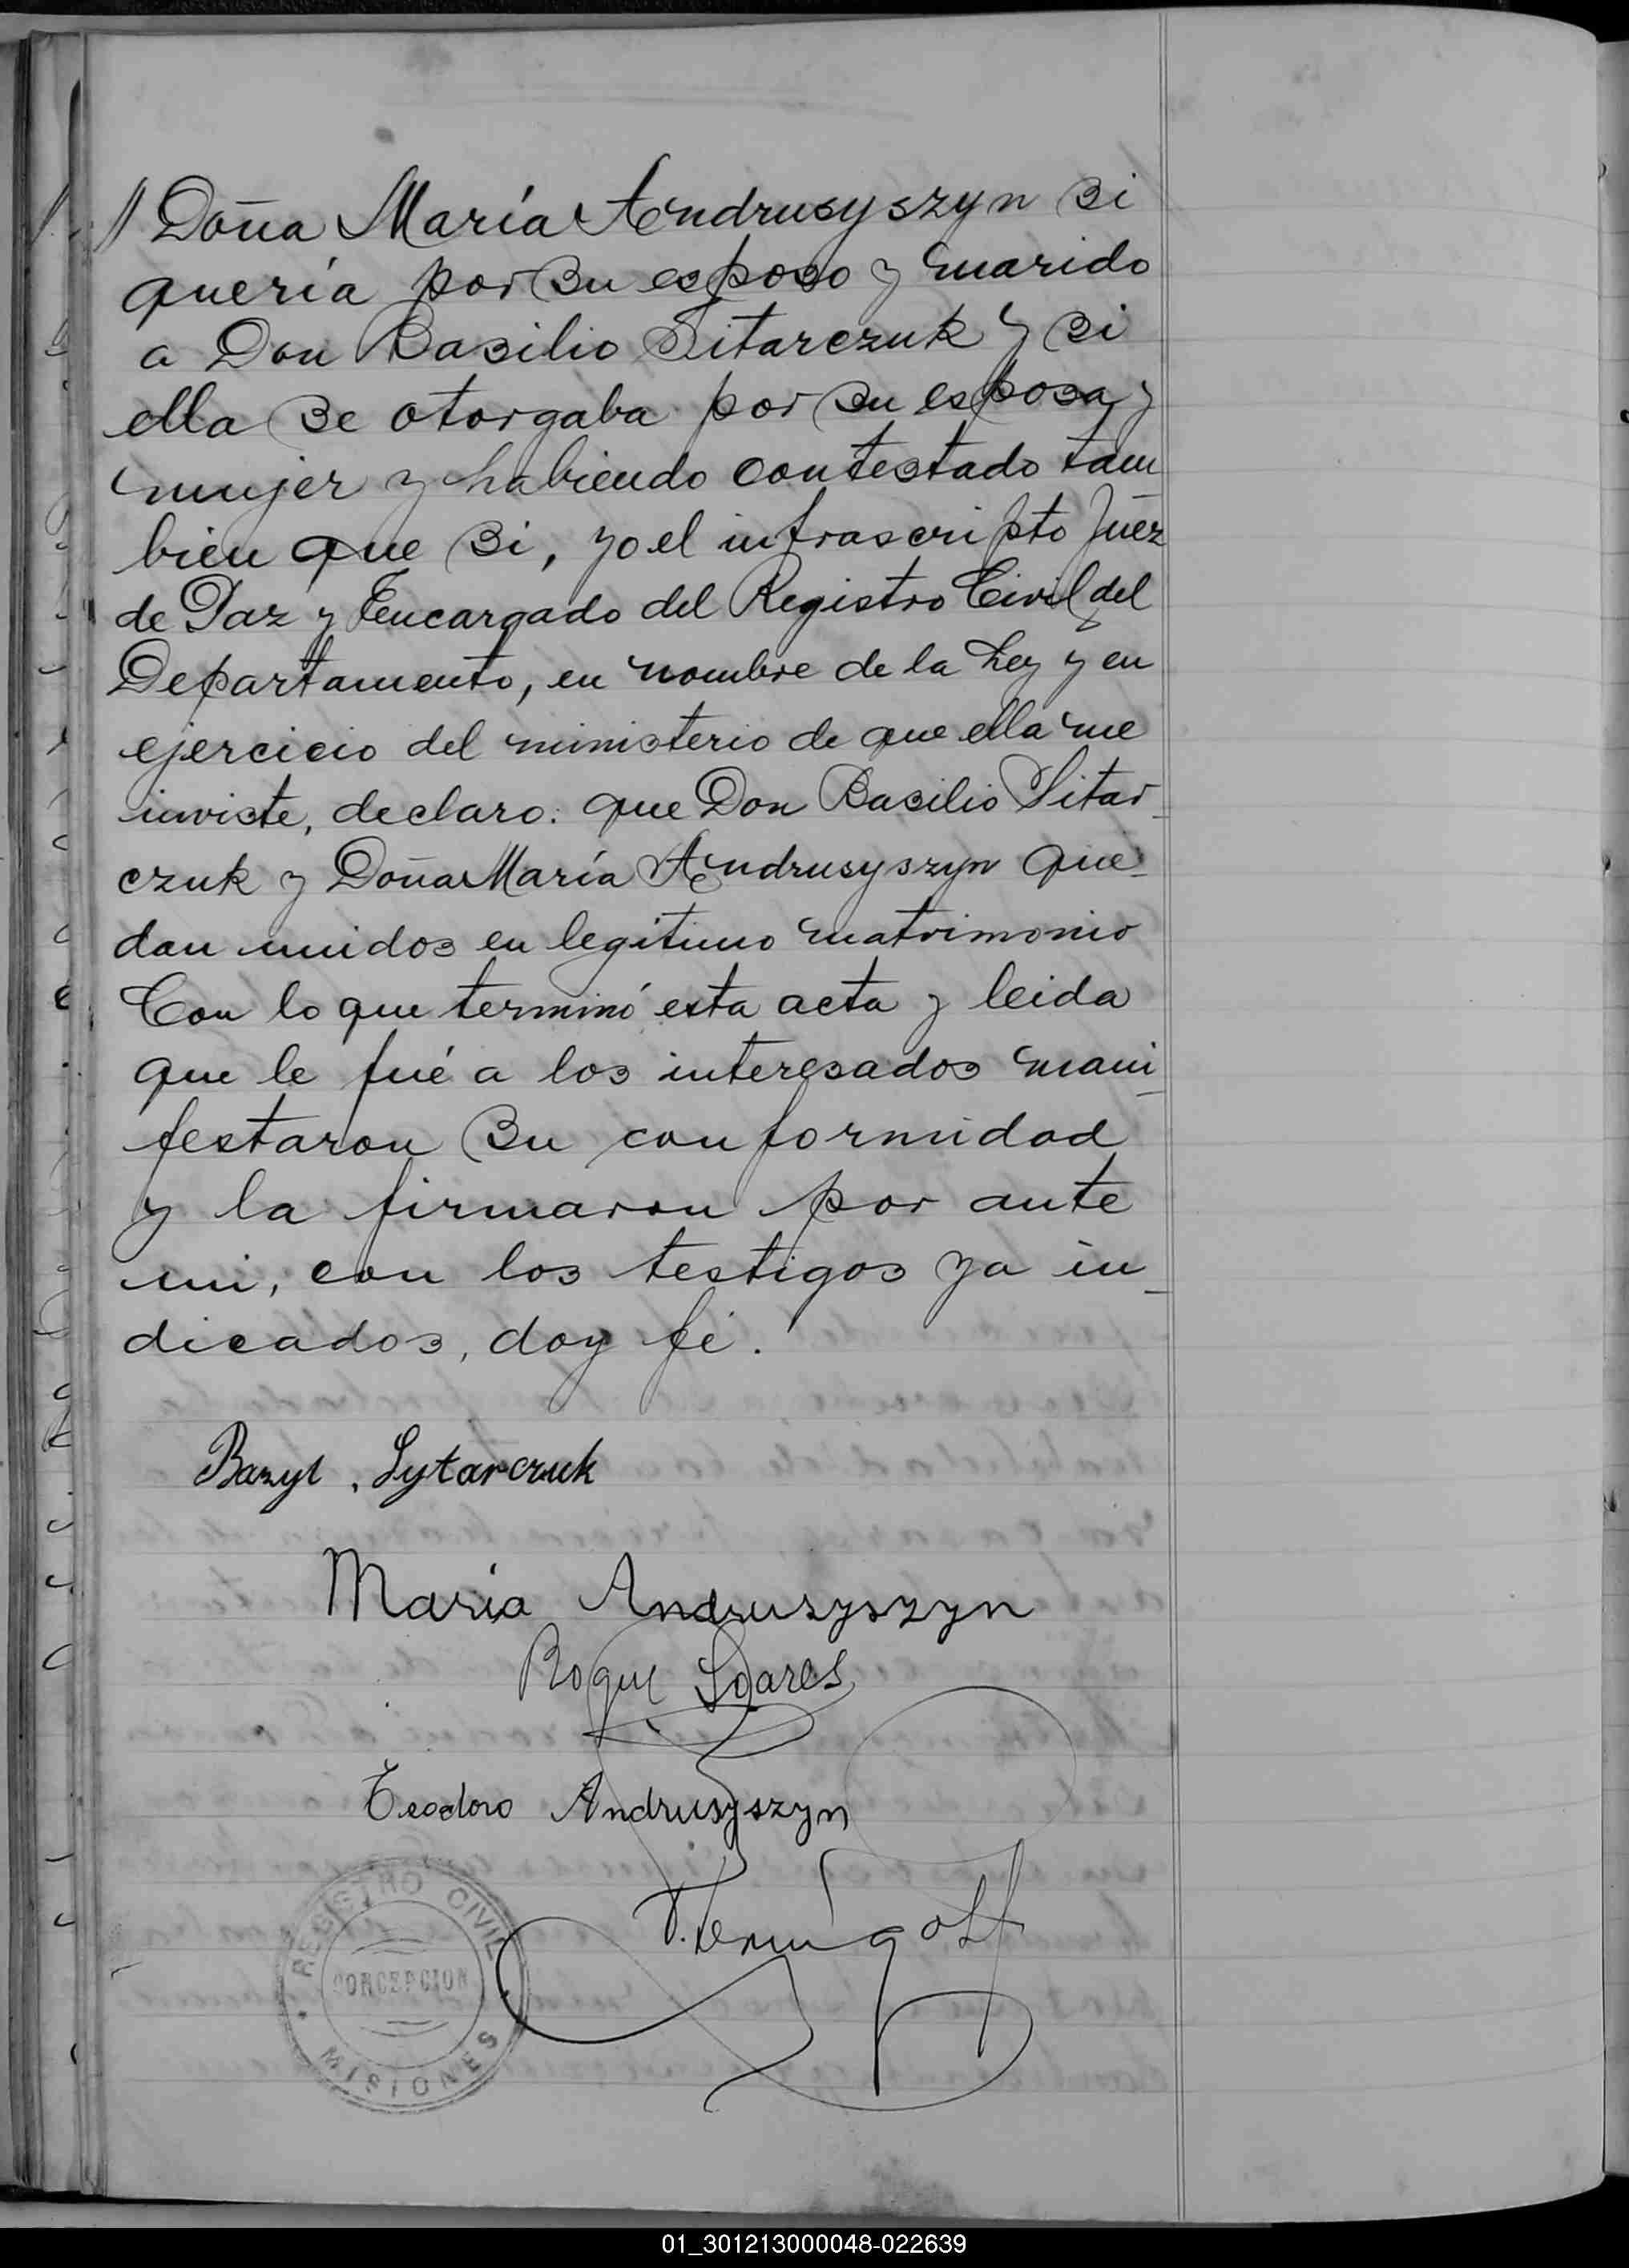 // Doña María Andrusyszyn si
quería por su esposo y marido
a Don Basilio Sitarczuk y si
ella se otorgaba por su esposa y
mujer y habiendo contestado tam
bien que si, yo el infrascripto Juez
de Paz y Encargado del Registro Civil del
Departamento, en nombre de la Ley y en
ejercicio del ministerio de que ella me
inviste, declaro: que Don Basilio Sitar_
czuk y Doña María Andrusyszyn que_
dan unidos en legítimo matrimonio
Con lo que terminó esta acta y leida
que le fué a los interesados mani_
festaron su conformidad
y la firmaron por ante
mi, con los testigos ya in_
dicados, doy fé.
Bazyl . Sytarczuk
Maria Andruszyszyn
Roque Soares
Teodoro Andrusyszyn
REGISTRO CIVIL
CONCEPCION
MISIONES
01_301213000048-022639